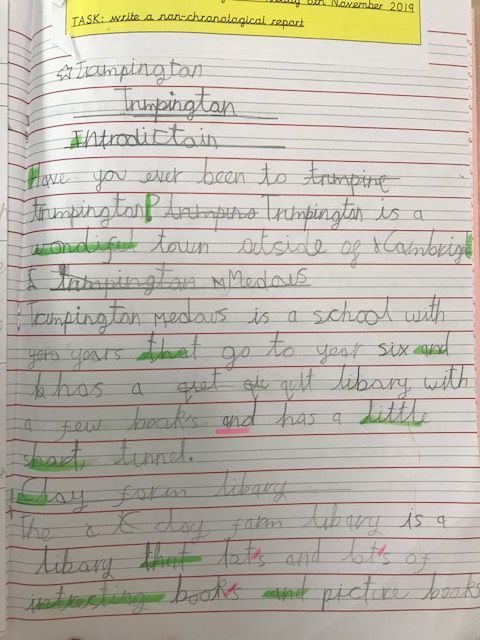 6th November 2019
TASK: write a non-chronological report
☆Trampington
Trumpington
Introdictoin
Have you ever been to trumpine
trumpington? trampins Trumpington is a
wondiful town outside of xCambrige
Trampington Medows
Trampington Medows is a school with
yero years that go to year six and
has a quet quit libary with
a few books and has a little
short tunnel.
Clay farm libary
The clay farm libary is a
libary that lot's and lot's of
intresting book's and picture books